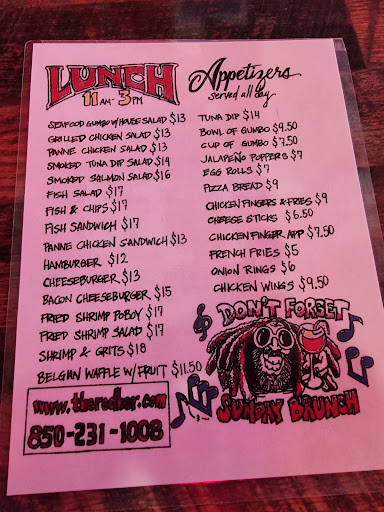 LUNCH
11AM - 3PM
SEAFOOD GUMBO W/ HOUSE SALAD $13
GRILLED CHICKEN SALAD $13
PANNE CHICKEN SALAD $13
SMOKED TUNA DIP SALAD $14
SMOKED SALMON SALAD $16
FISH SALAD $17
FISH & CHIPS $17
FISH SANDWICH $17
PANNE CHICKEN SANDWICH $13
HAMBURGER $12
CHEESEBURGER $13
BACON CHEESEBURGER $15
FRIED SHRIMP POBOY $17
FRIED SHRIMP SALAD $17
SHRIMP & GRITS $18
BELGIAN WAFFLE W/ FRUIT $11.50
www.theredbar.com
850-231-1008
Appetizers
served all day
TUNA DIP $14
BOWL OF GUMBO $9.50
CUP OF GUMBO $7.50
JALAPEÑO POPPERS $7
EGG ROLLS $7
PIZZA BREAD $9
CHICKEN FINGERS & FRIES $9
CHEESE STICKS $6.50
CHICKEN FINGER APP $7.50
FRENCH FRIES $5
ONION RINGS $6
CHICKEN WINGS $9.50
DON'T FORGET
SUNDAY BRUNCH